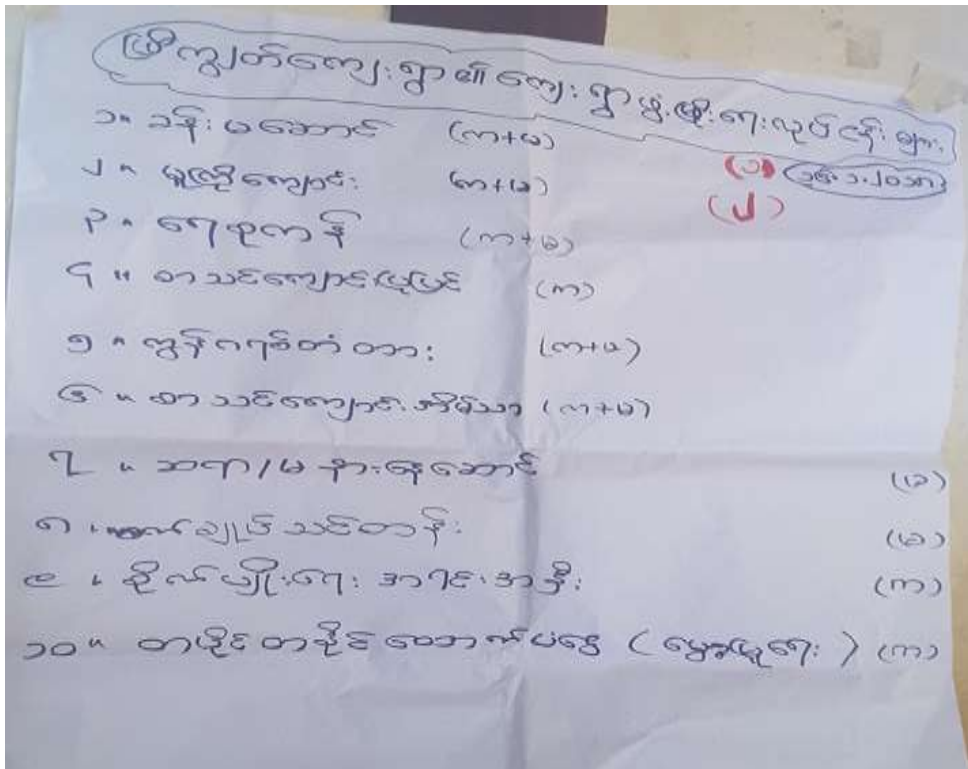 မြိုကျွတ်ကျေးရွာ၏ ကျေးရွာဖွံ့ဖြိုးရေးလုပ်ငန်းများ
၁။ ခန်းမဆောင် (က+မ)
(၁)
၂။ မူကြိုကျောင်း (က+မ)
(၂)
၃။ ရေစုကန် (က+မ)
၄။ စာသင်ကျောင်းမြေပြင် (က)
၅။ ကွန်ကရစ်တံတား (က+မ)
၆။ စာသင်ကျောင်းအိမ်သာ (က+မ)
၇။ ဆရာ/မ နားနေဆောင် (မ)
၈။ စက်ချုပ်သင်တန်း (မ)
၉။ စိုက်ပျိုးရေး အရင်းအနှီး (က)
၁၀။ တပိုင်တနိုင် ထောက်ပံ့ငွေ (မွေးမြူရေး) (က)